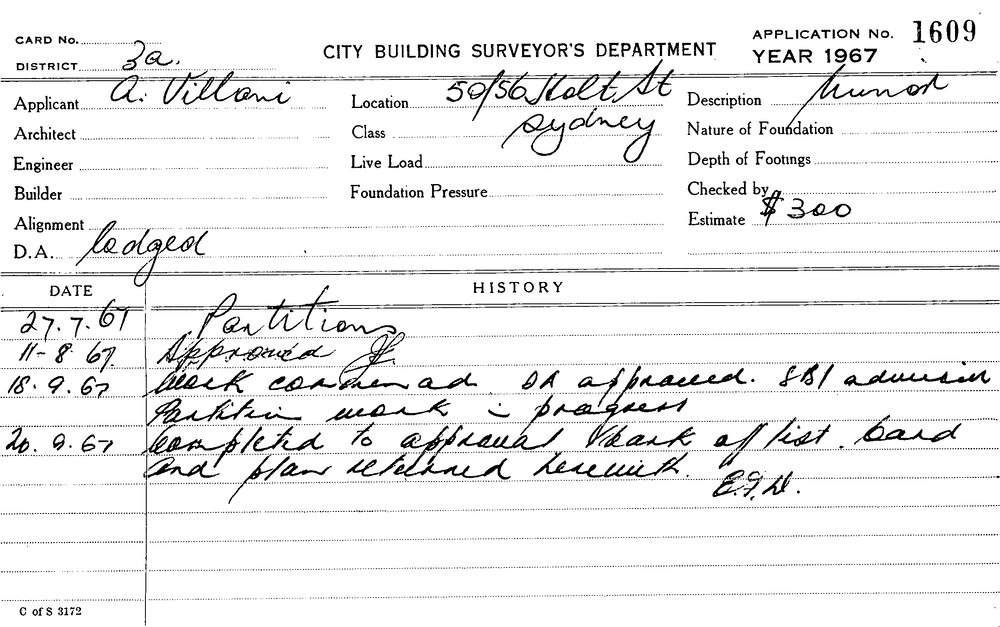 CARD No.
DISTRICT 2a.
CITY BUILDING SURVEYOR'S DEPARTMENT
APPLICATION No. 1609
YEAR 1967
Applicant A. Villani
Location 50/56 Holt St
Description
Architect
Class Sydney
Nature of Foundation
Engineer
Live Load
Depth of Footings
Builder
Foundation Pressure
Checked by
Alignment
Estimate $300
D.A. lodged
DATE HISTORY
27.7.67 Partitions
11-8 67. Approved
18.9.67 Work commenced approved.
Partition work progress
20.9.67 Completed to approval off list. Card
and plan returned herewith.
C of S 3172